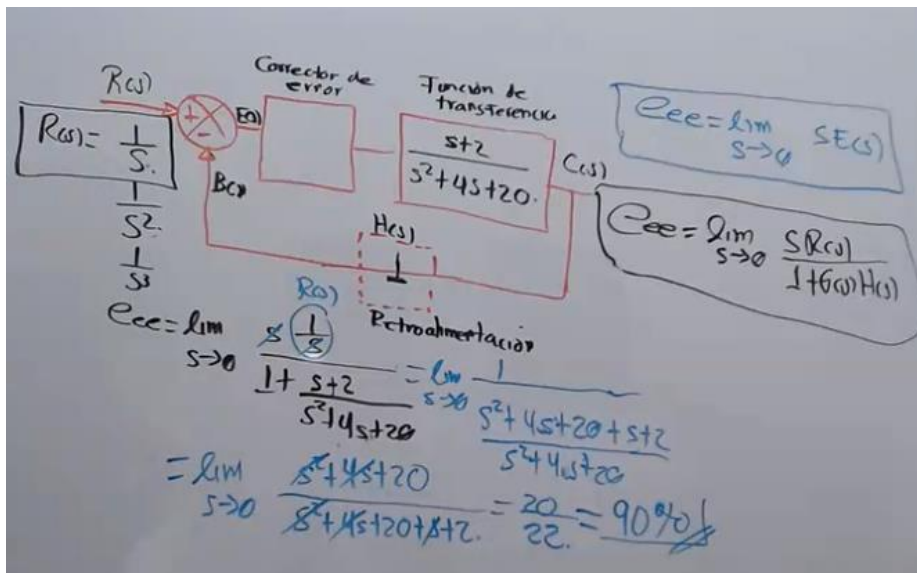 R(s)
R(s)= 1/S.
1/S²
1/S3
+
-
E(s)
B(s)
Corrector de
error
Función de
transferencia
s+2/s²+4s+20.
C(s)
H(s)
1
Retroalimentación
eee= lim s→0 SE(s)
eee= lim s→0 SR(s)/1+G(s)H(s)
R(s)
eee= lim s→0 s(1/s)/1+ s+2/s²+4s+20 = lim s→0 1/s²+4s+20+s+2/s²+4s+20
= lim s→0 s²+4s+20/s²+4s+20+s+2. = 20/22. = 90%